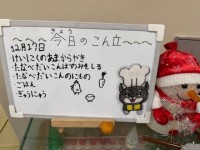 きょう
～～～今日のこん立～～～
12月17日
・けいにくのあまからやき
・たなべだいこんはのみそしる
・たなべだいこんのにもの
・ごはん
・ぎゅうにゅう